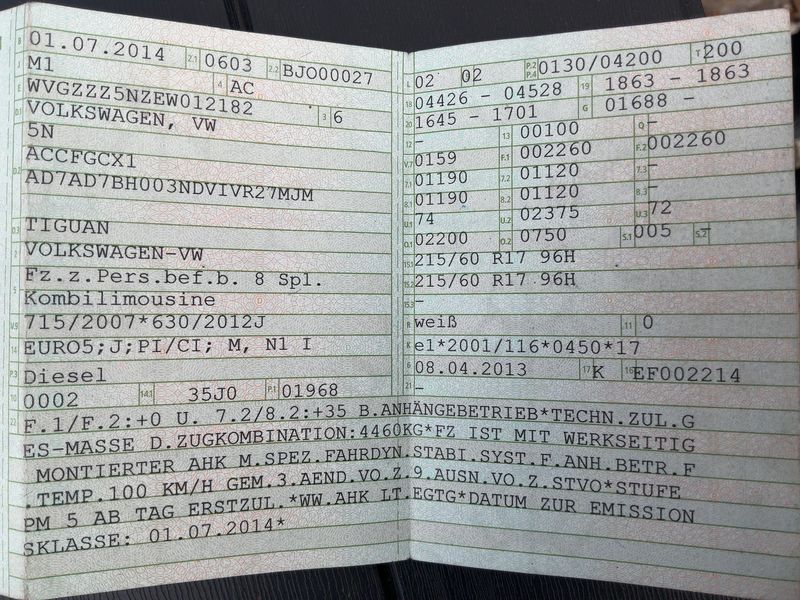 B 01.07.2014 2.1 0603 2.2 BJO00027
J M1 4 AC
E WVGZZZ5NZEW012182
D.1 VOLKSWAGEN, VW 3 6
5N
D.2 ACCFGCX1
AD7AD7BH003NDVIVR27MJM
D.3 TIGUAN
2 VOLKSWAGEN-VW
5 Fz.z.Pers.bef.b. 8 Spl.
Kombilimousine
V.9 715/2007*630/2012J
14 EURO5;J;PI/CI; M, N1 I
P.3 Diesel
10 0002 14.1 35J0 P.1 01968
L 02 9 02 P.2 P.4 0130/04200 T 200
18 04426 - 04528 19 1863 - 1863
20 1645 - 1701 G 01688 -
12 - 13 00100 Q -
V.7 0159 F.1 002260 F.2 002260
7.1 01190 7.2 01120 7.3 -
8.1 01190 8.2 01120 8.3 -
U.1 74 U.2 02375 U.3 72
O.1 02200 O.2 0750 S.1 005 S.2 -
15.1 215/60 R17 96H
15.2 215/60 R17 96H
15.3 -
R weiß 11 0
K e1*2001/116*0450*17
6 08.04.2013 17 K 16 EF002214
21 -
22 F.1/F.2:+0 U. 7.2/8.2:+35 B.ANHÄNGEBETRIEB*TECHN.ZUL.G
ES-MASSE D.ZUGKOMBINATION:4460KG*FZ IST MIT WERKSEITIG
MONTIERTER AHK M.SPEZ.FAHRDYN.STABI.SYST.F.ANH.BETR.F
.TEMP.100 KM/H GEM.3.AEND.VO.Z.9.AUSN.VO.Z.STVO*STUFE
PM 5 AB TAG ERSTZUL.*WW.AHK LT.EGTG*DATUM ZUR EMISSION
SKLASSE: 01.07.2014*